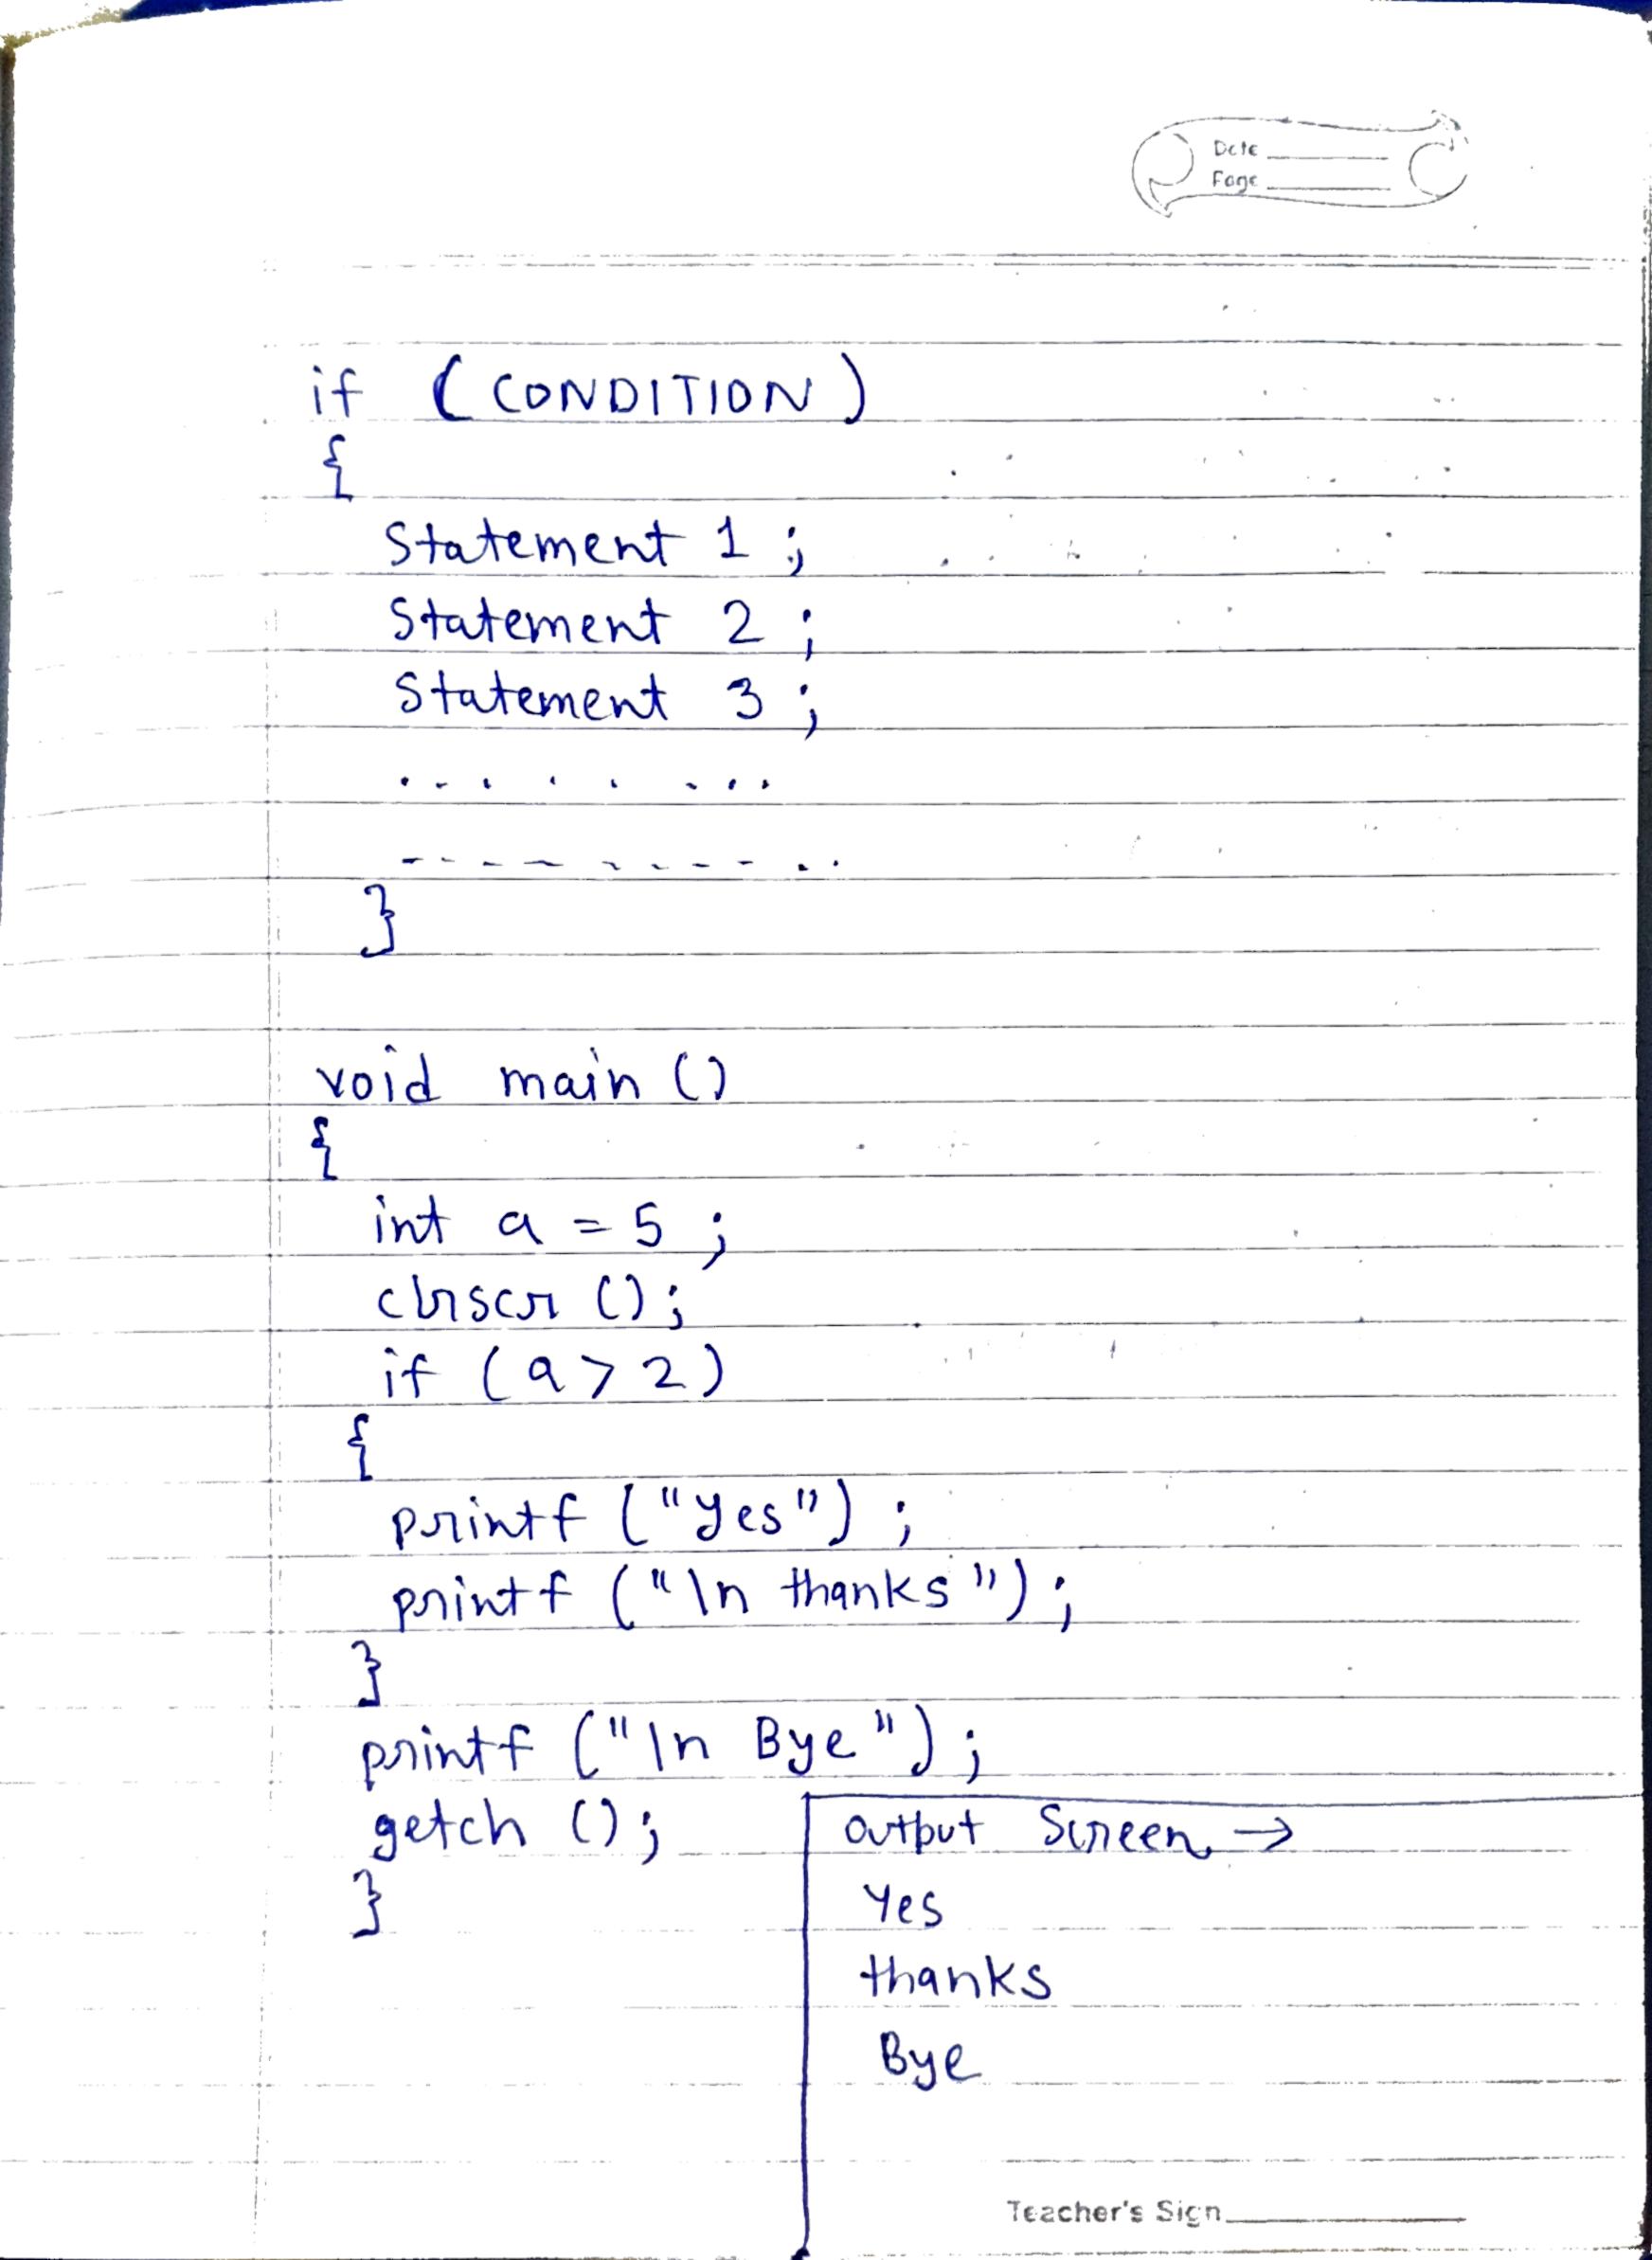 Date
Page
if (CONDITION)
{
Statement 1 ;
Statement 2 ;
Statement 3 ;
. . . . . . . . .
- - - - - - - - - . .
}
void main ()
{
int a = 5 ;
clrscr ();
if (a > 2)
{
printf ("Yes") ;
printf ("\n thanks") ;
}
printf ("\n Bye") ;
getch ();
}
Output Screen →
Yes
thanks
Bye
Teacher's Sign